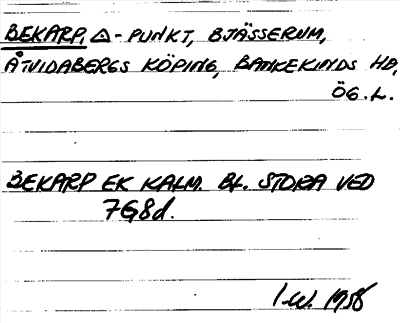 BEKARP, △-PUNKT, BJÄSSERUM,
ÅTVIDABERGS KÖPING, BANKEKINDS HD,
ÖG. L.
BEKARP EK KALM. BL. STORA VED
7G8d.
I.W. 1956